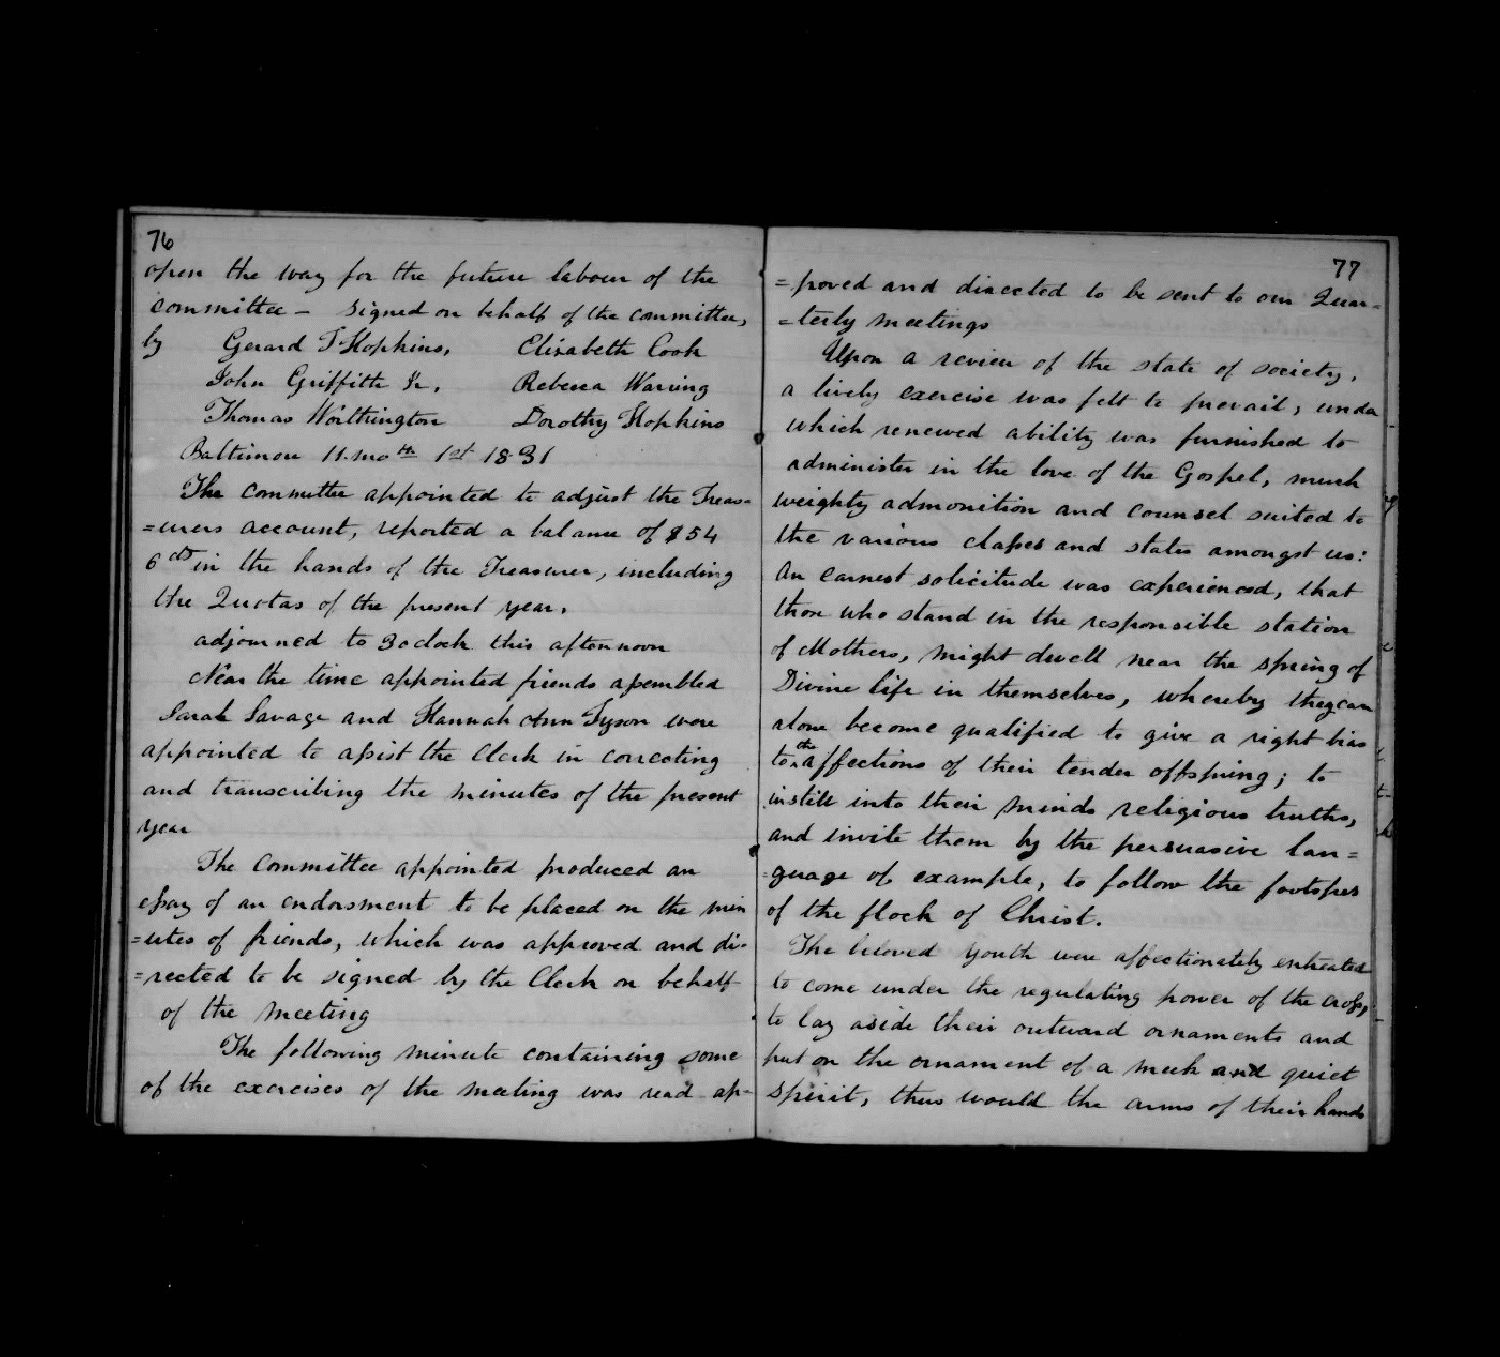 76
open the way for the future labour of the
committee – Signed on behalf of the committee,
by Gerard T Hopkins, Elisabeth Cook
John Griffith Jr, Rebecca Waring
Thomas Worthington Dorothy Hopkins
Baltimore 11 mo th 1st 1831
The committee appointed to adjust the Treas-
=urers account, reported a balance of $54
6 cts in the hands of the Treasurer, including
the Quotas of the present year.
adjourned to 3oclock this afternoon
Near the time appointed friends assembled
Sarah Savage and Hannah Ann Tyson were
appointed to assist the Clerk in correcting
and transcribing the minutes of the present
year
The Committee appointed produced an
essay of an endorsment to be placed on the min
=utes of friends, which was approved and di-
=rected to be signed by the Clerk on behalf
of the meeting
The following minute containing some
of the exercises of the meeting was read ap-
77
=proved and directed to be sent to our Quar-
=terly meetings
Upon a review of the state of society,
a lively exercise was felt to prevail, under
which renewed ability was furnished to
administer in the love of the Gospel, much
weighty admonition and counsel suited to
the various classes and states amongst us:
An earnest solicitude was experienced, that
those who stand in the responsible station
of Mothers, might dwell near the spring of
Divine life in themselves, whereby they can
alone become qualified to give a right bias
to the affections of their tender offspring; to
instill into their minds religious truths,
and invite them by the persuasive lan=
=guage of example, to follow the footsteps
of the flock of Christ.
The beloved youth were affectionately entreated
to come under the regulating power of the cross,
to lay aside their outward ornaments and
put on the ornament of a meek and quiet
spirit, thus would the arms of their hands